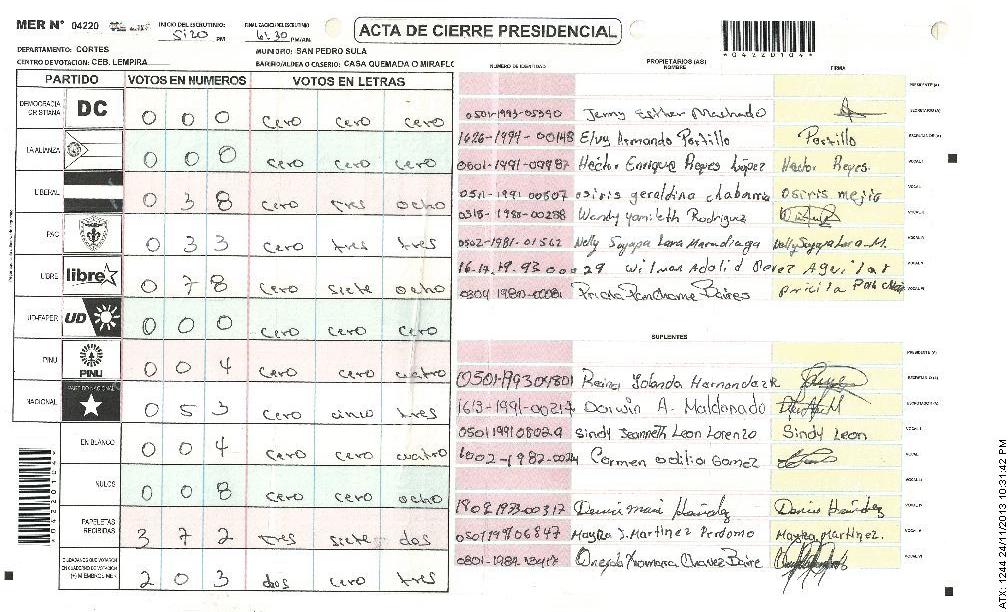 MER N° 04220
INICIO DEL ESCRUTINIO
5:20 PM
FINALIZACION DEL ESCRUTINIO
6:30 PM/AM
ACTA DE CIERRE PRESIDENCIAL
*04220104*
DEPARTAMENTO: CORTES
MUNICIPIO: SAN PEDRO SULA
CENTRO DE VOTACION: CEB. LEMPIRA
BARRIO/ALDEA O CASERIO: CASA QUEMADA O MIRAFLO
PARTIDO VOTOS EN NUMEROS VOTOS EN LETRAS
DEMOCRACIA CRISTIANA DC 0 0 0 cero cero cero
LA ALIANZA 0 0 0 cero cero cero
LIBERAL 0 3 8 cero tres ocho
PAC 0 3 3 cero tres tres
LIBRE libre 0 7 8 cero siete ocho
UD-FAPER UD 0 0 0 cero cero cero
PINU PINU 0 0 4 cero cero cuatro
NACIONAL PARTIDO NACIONAL 0 5 3 cero cinco tres
EN BLANCO 0 0 4 cero cero cuatro
NULOS 0 0 8 cero cero ocho
PAPELETAS RECIBIDAS 3 7 2 tres siete dos
CIUDADANOS QUE VOTARON EN CUADERNO DE VOTACION (+) MIEMBROS MER 2 0 3 dos cero tres
NUMERO DE IDENTIDAD PROPIETARIOS (AS) NOMBRE FIRMA
PRESIDENTE (A)
0501-1993-05390 Jenny Esther Machado SECRETARIO (A)
1626-1994-00148 Elvy Armando Portillo Portillo
0501-1991-09987 Héctor Enrique Reyes López Héctor Reyes. VOCAL I
0511-1991 00507 osiris geraldina chabarria osiris mejia
0315-1985-00288 Wendy Yamileth Rodriguez
0502-1981-01562 Nelly Suyapa Lara Maradiaga Nelly Suyapa Lara M.
Wilman Adolid Perez Aguilar
0304 1980-00081
SUPLENTES
PRESIDENTE (A)
0501199304801 Reina Yolanda Hernandez
1613-1991-00217 Darwin A. Maldonado
0501199108029 Sindy Jeanneth Leon Lorenzo Sindy Leon
Carmen odilia Gomez
1802 1973-00317
0501197606847 Mayra J. Martinez Perdomo Mayra Martinez.
*04220104*
ATX: 1244 24/11/2013 10:31:42 PM